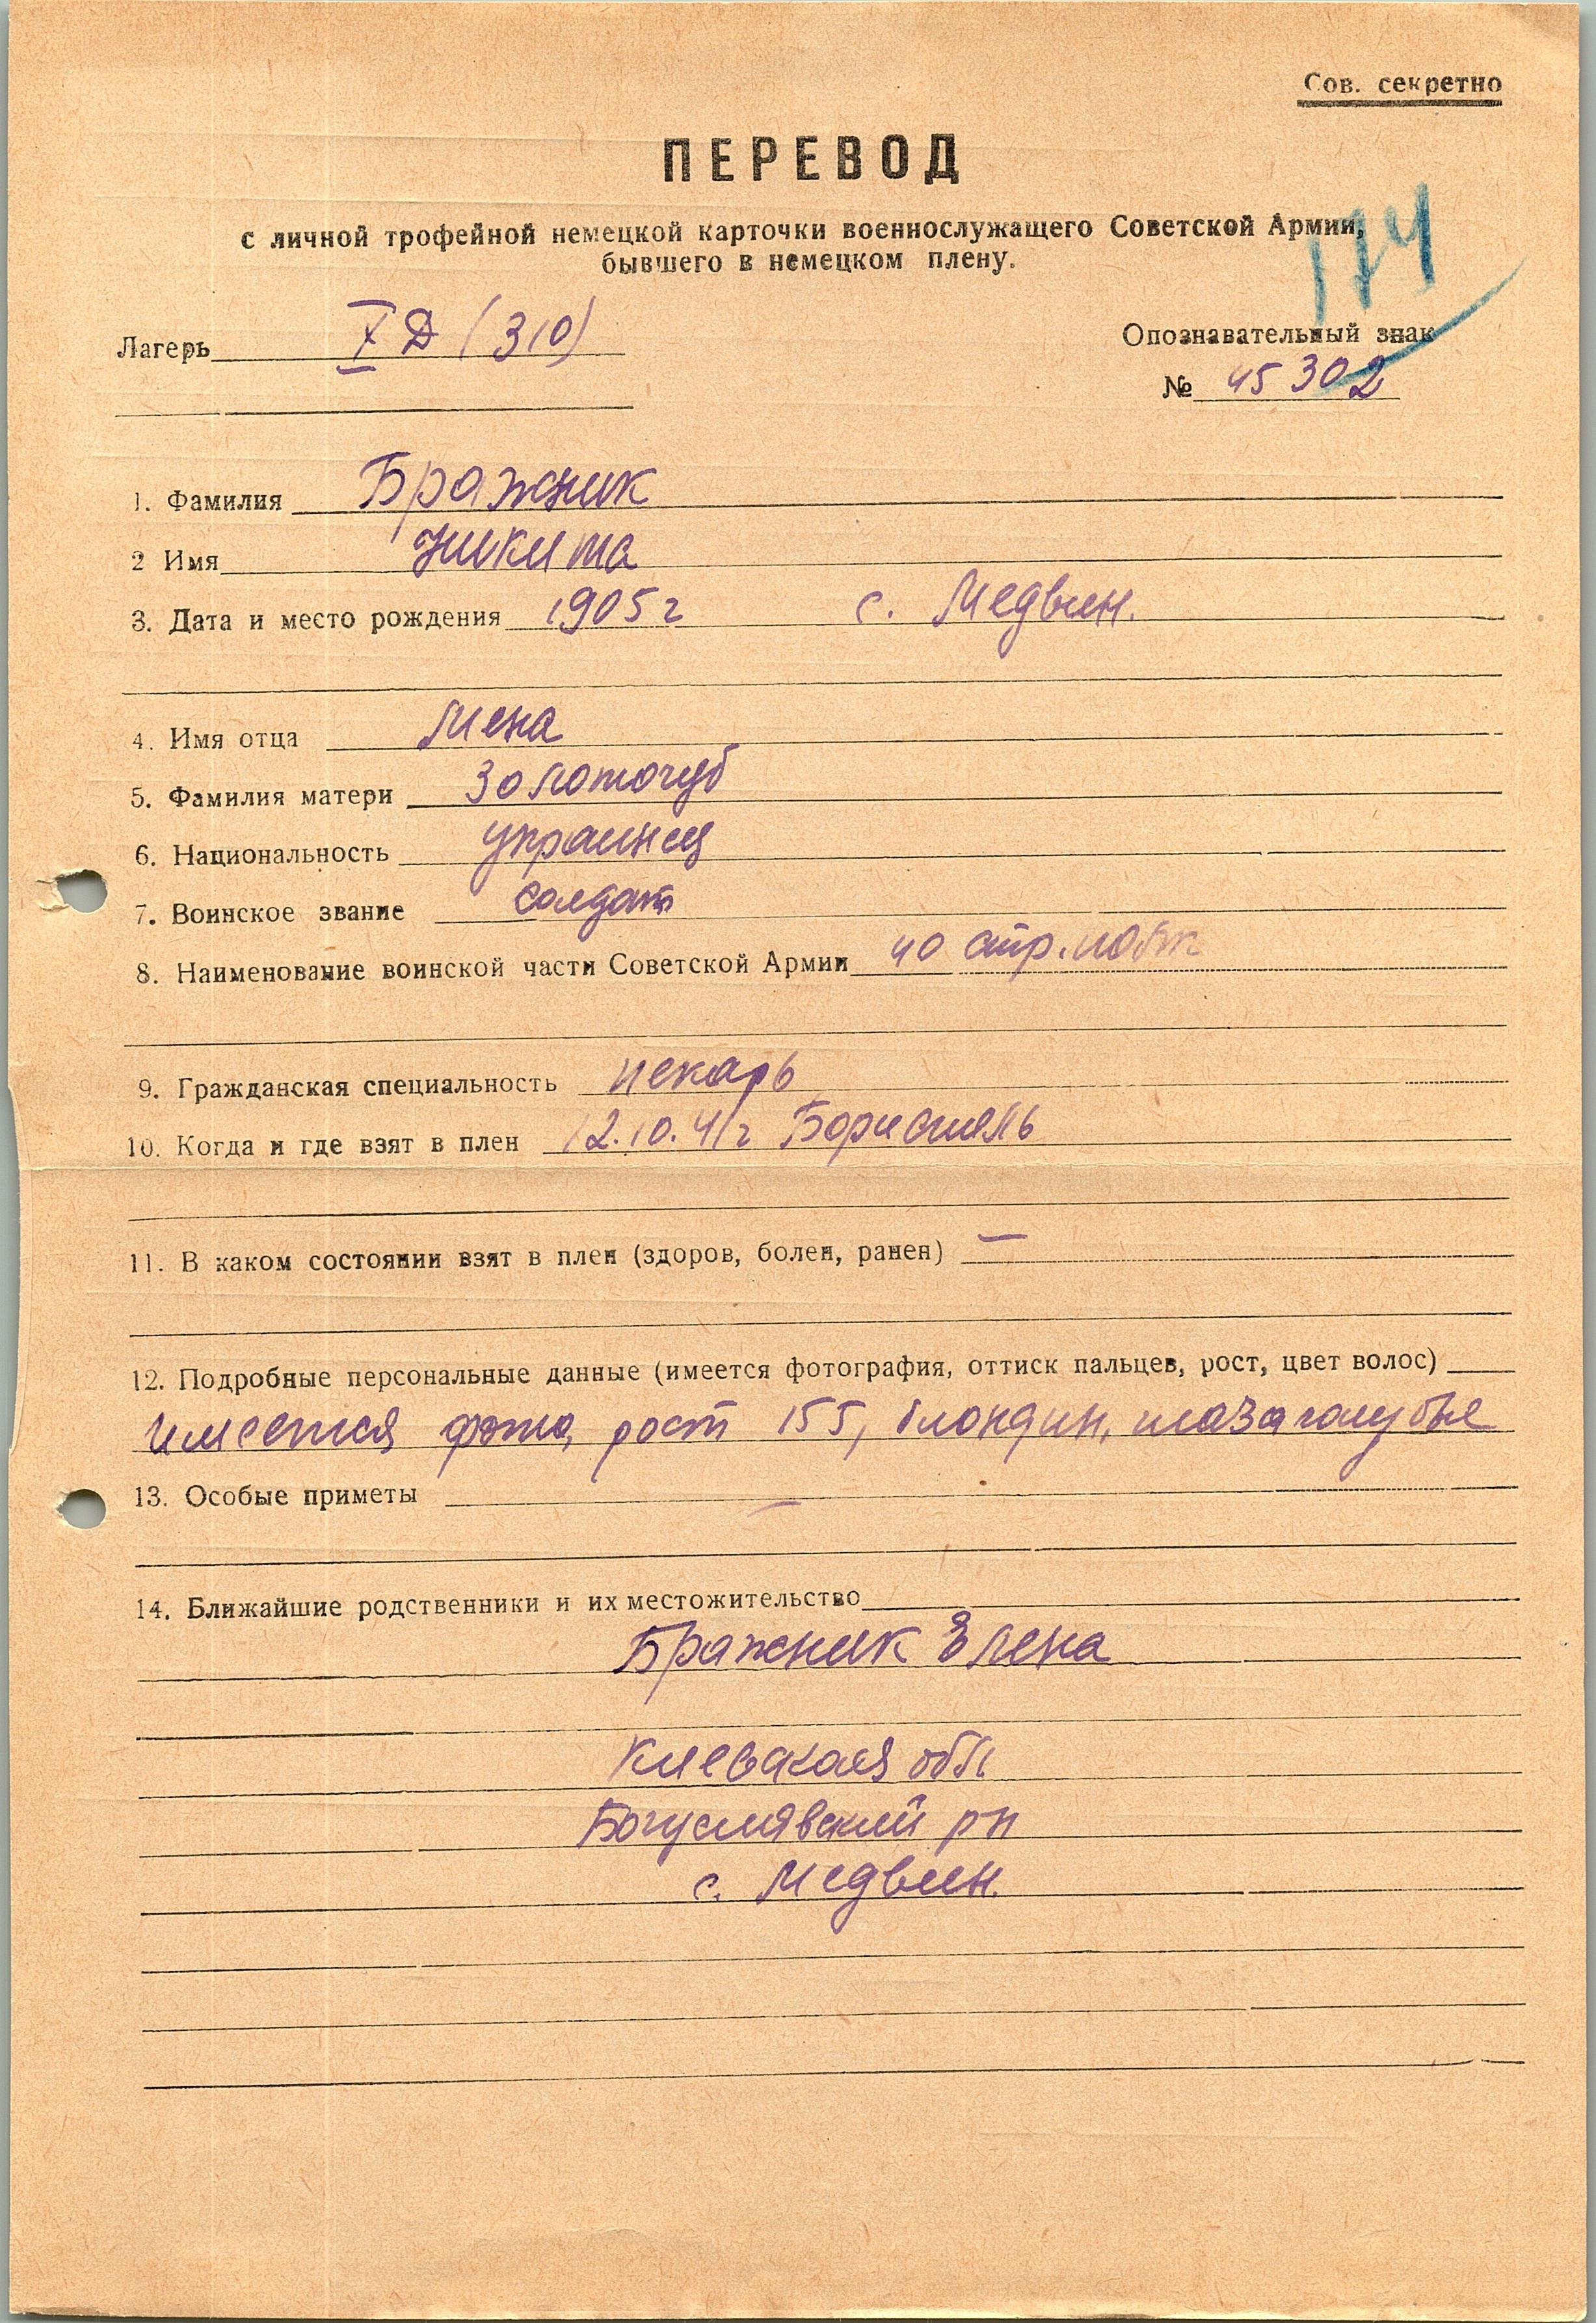 Сов. секретно
ПЕРЕВОД
с личной трофейной немецкой карточки военнослужащего Советской Армии,
бывшего в немецком плену.
174
Лагерь X Д (310)
Опознавательный знак
№ 45302
1. Фамилия Бражник
2 Имя Никита
3. Дата и место рождения 1905 г с. Медвин.
4. Имя отца Мена
5. Фамилия матери Золоточуб
6. Национальность украинец
7. Воинское звание солдат
8. Наименование воинской части Советской Армии 40 стр.
9. Гражданская специальность пекарь
10. Когда и где взят в плен 12.10.41г Бориспель
11. В каком состоянии взят в плен (здоров, болен, ранен) —
12. Подробные персональные данные (имеется фотография, оттиск пальцев, рост, цвет волос)
имеется фото, рост 155, блондин, глаза голубые
13. Особые приметы —
14. Ближайшие родственники и их местожительство
Бражник Елена
Киевская обл
Богуслявский рн
с. Медвин.